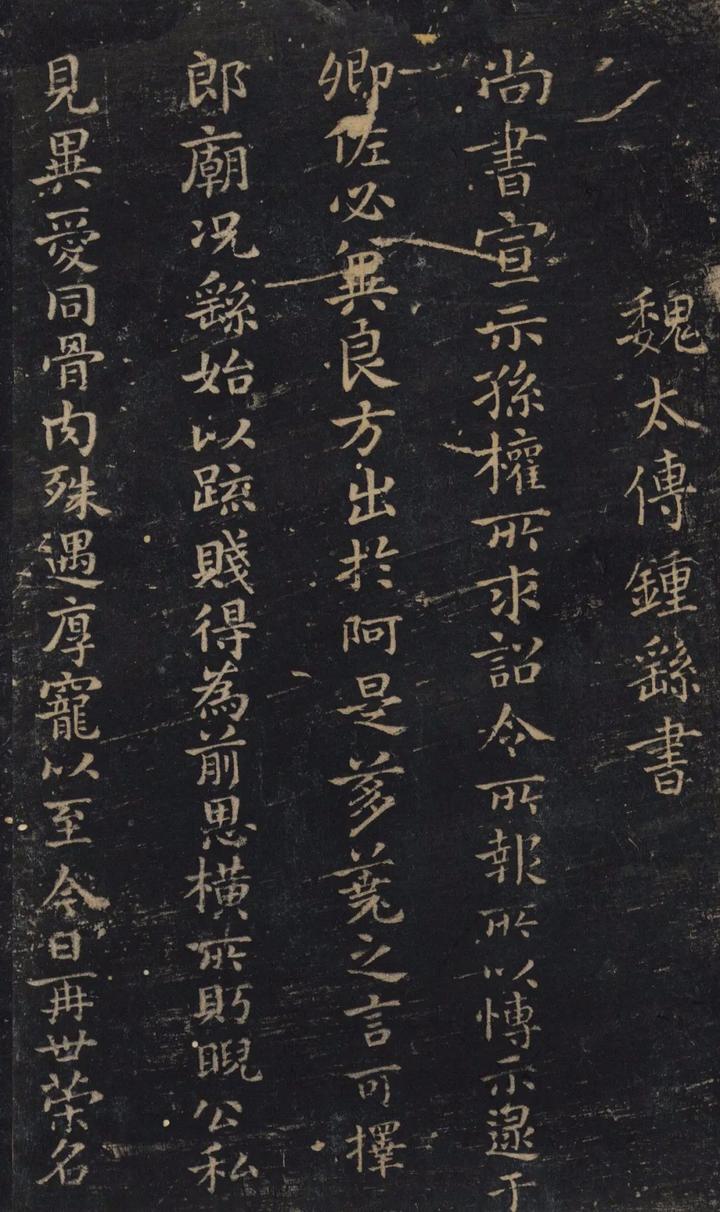 魏太傅鍾繇書
尚書宣示孫權所求詔令所報所以慱示逮于
卿佐必兾良方出於阿是芻蕘之言可擇
郎廟況繇始以踈賤得為前恩橫所眄睨公私
見異愛同骨肉殊遇厚寵以至今日再世榮名